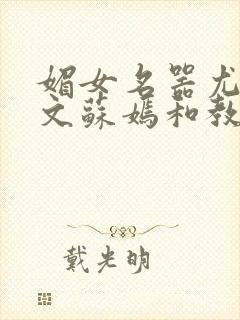 媚女名器尤
文蘇媽和教
戴光明